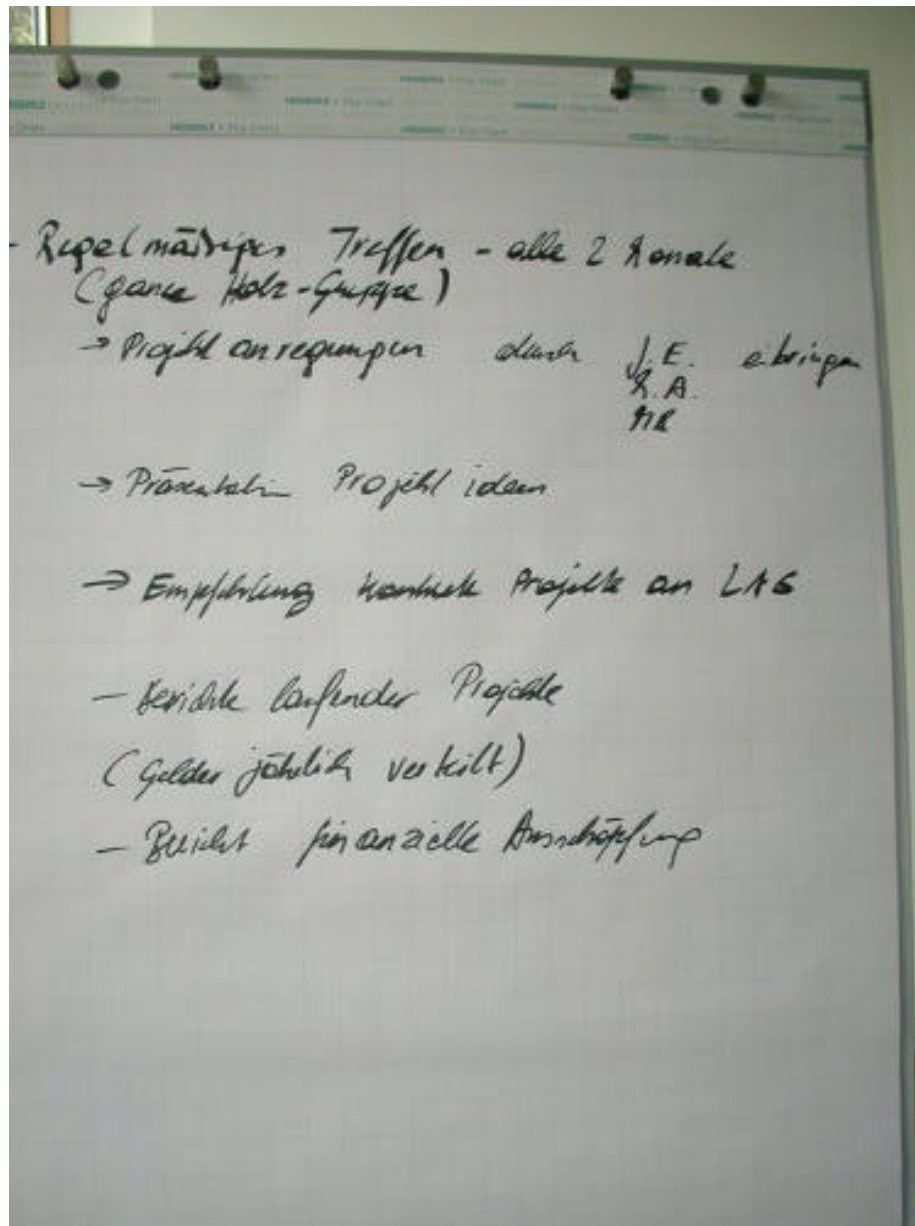 - Regelmäßiges Treffen - alle 2 Monate
(ganze Holz-Gruppe)
→ Projektanregungen durch J.E. eibringen
R.A.
MR
→ Präsentation Projektideen
→ Empfehlung konkrete Projekte an LAG
- Berichte laufender Projekte
(Gelder jährlich verteilt)
- Bericht finanzielle Ausschöpfung